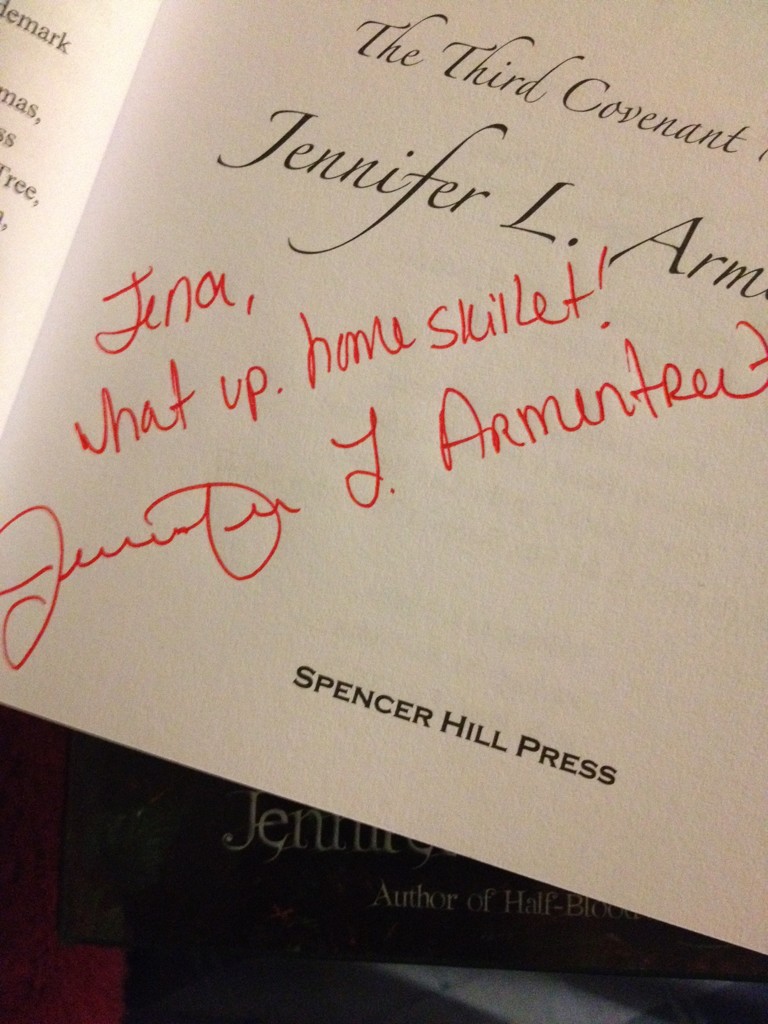 demark
mas,
ss
Tree,
The Third Covenant
Jennifer L. Arme
Jena,
what up. home skillet!
Jennifer L. Armentrout
SPENCER HILL PRESS
Jennifer
Author of Half-Blood